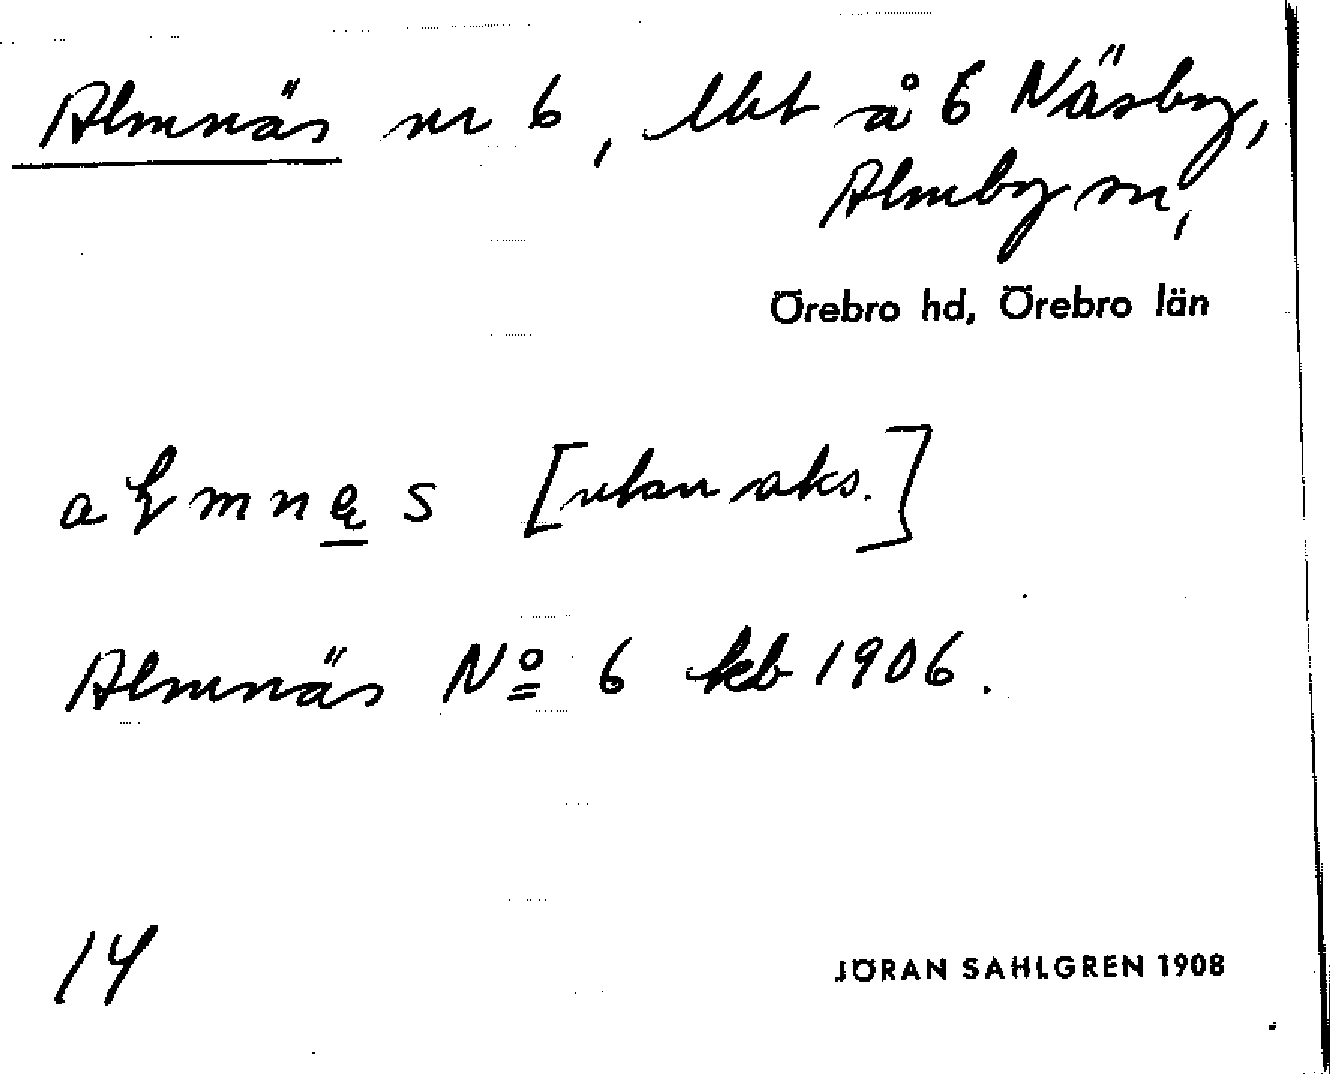 Almnäs nr 6, lht å 6 Näsby,
Almby sn,
Örebro hd, Örebro län
aɫmnę̱s [utan aks.]
Almnäs Nº 6 kb 1906.
14
JÖRAN SAHLGREN 1908